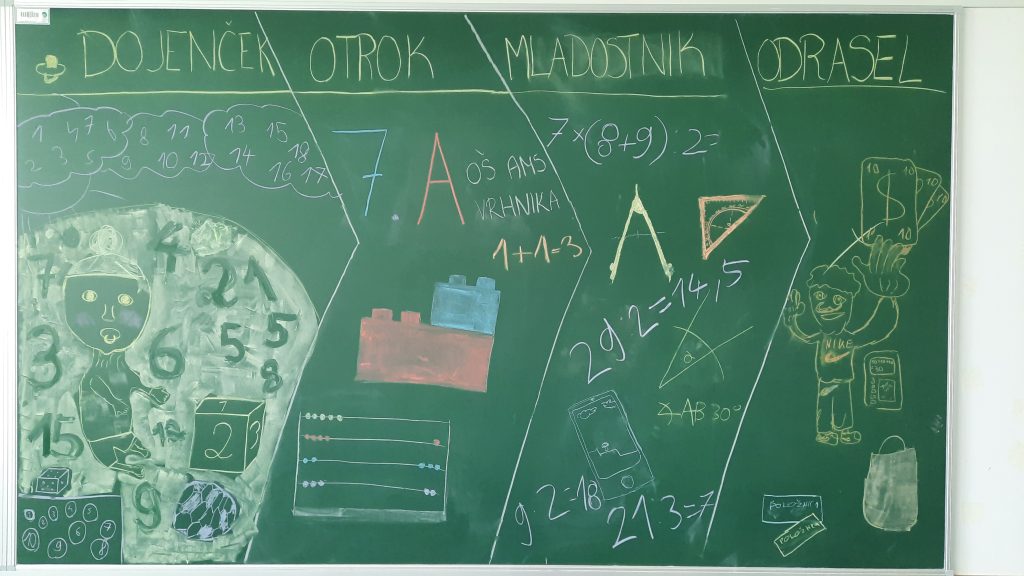 DOJENČEK
OTROK
MLADOSTNIK
ODRASEL
1 4 7 6 8 11 13 15 18
2 3 5 9 10 12 14 16 17
7 4 21
3 6 5 5
8
15 12 2
9
7. A
OŠ AMS
VRHNIKA
1+1=3
7×(8+9):2=
29:2=14,5
α
∢AB 30°
9·2=18
21:3=7
10 10
$
10 10
NIKE
POLOŽNICA
POLOŽNICA